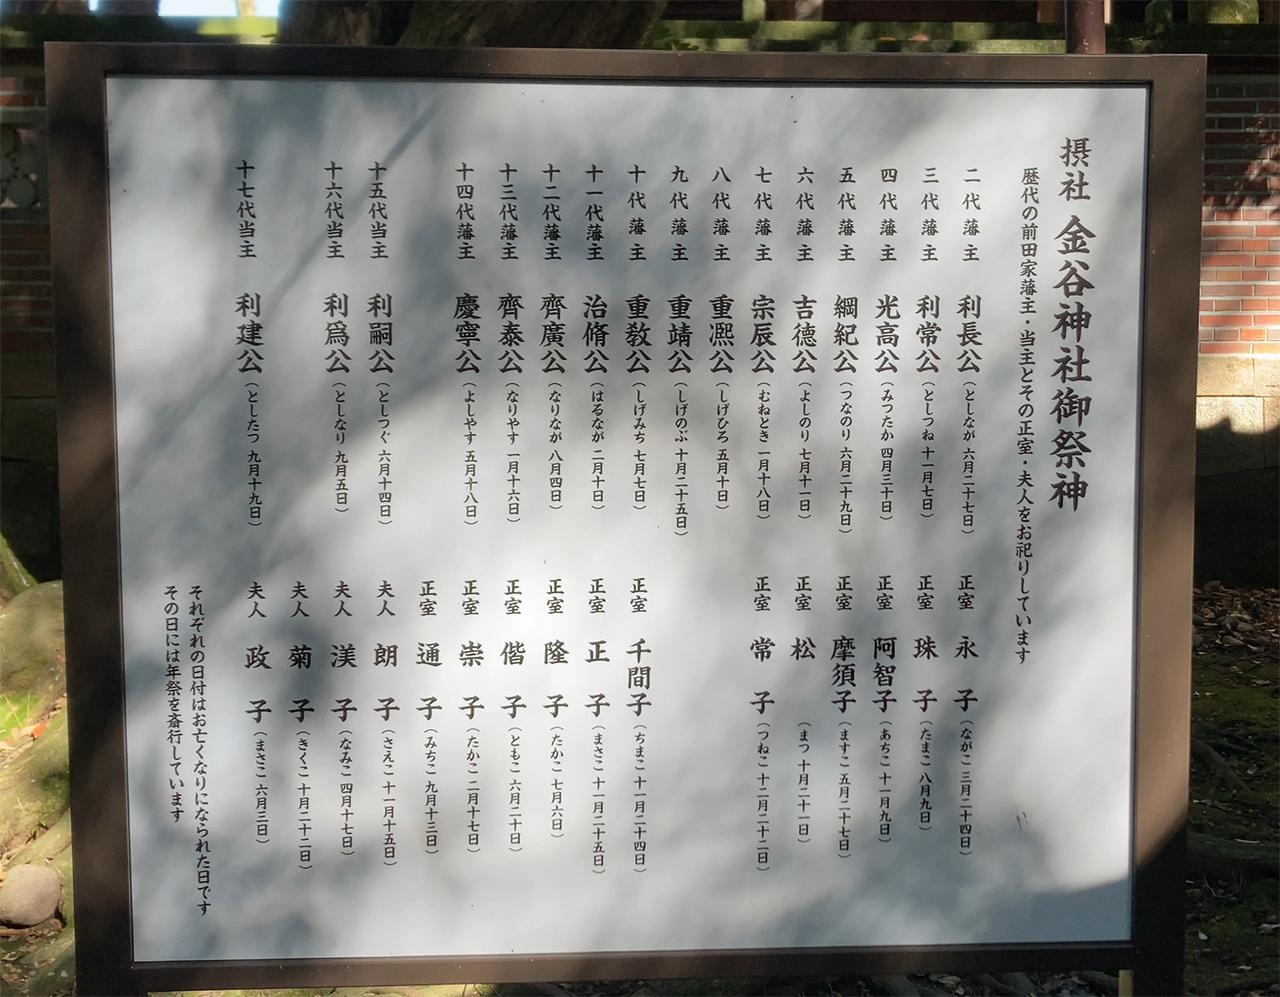 摂社 金谷神社御祭神
歴代の前田家藩主・当主とその正室・夫人をお祀りしています
二代藩主 利長公（としなが 六月二十七日） 正室 永子（ながこ 三月二十四日）
三代藩主 利常公（としつね 十一月七日） 正室 珠子（たまこ 八月九日）
四代藩主 光高公（みつたか 四月三十日） 正室 阿智子（あちこ 十一月九日）
五代藩主 綱紀公（つなのり 六月二十九日） 正室 摩須子（ますこ 五月二十七日）
六代藩主 吉德公（よしのり 七月十一日） 正室 松（まつ 十月二十一日）
七代藩主 宗辰公（むねとき 一月十八日） 正室 常子（つねこ 十二月二十二日）
八代藩主 重凞公（しげひろ 五月十日）
九代藩主 重靖公（しげのぶ 十月二十五日）
十代藩主 重教公（しげみち 七月七日） 正室 千間子（ちまこ 十一月二十四日）
十一代藩主 治脩公（はるなが 二月十日） 正室 正子（まさこ 十一月二十五日）
十二代藩主 齊廣公（なりなが 八月四日） 正室 隆子（たかこ 七月六日）
十三代藩主 齊泰公（なりやす 一月十六日） 正室 偕子（ともこ 六月二十日）
十四代藩主 慶寧公（よしやす 五月十八日） 正室 崇子（たかこ 二月十七日）
正室 通子（みちこ 九月十三日）
十五代当主 利嗣公（としつぐ 六月十四日） 夫人 朗子（さえこ 十一月十五日）
十六代当主 利爲公（としなり 九月五日） 夫人 渼子（なみこ 四月十七日）
夫人 菊子（きくこ 十月二十二日）
十七代当主 利建公（としたつ 九月十九日） 夫人 政子（まさこ 六月三日）
それぞれの日付はお亡くなりになられた日です
その日には年祭を斎行しています